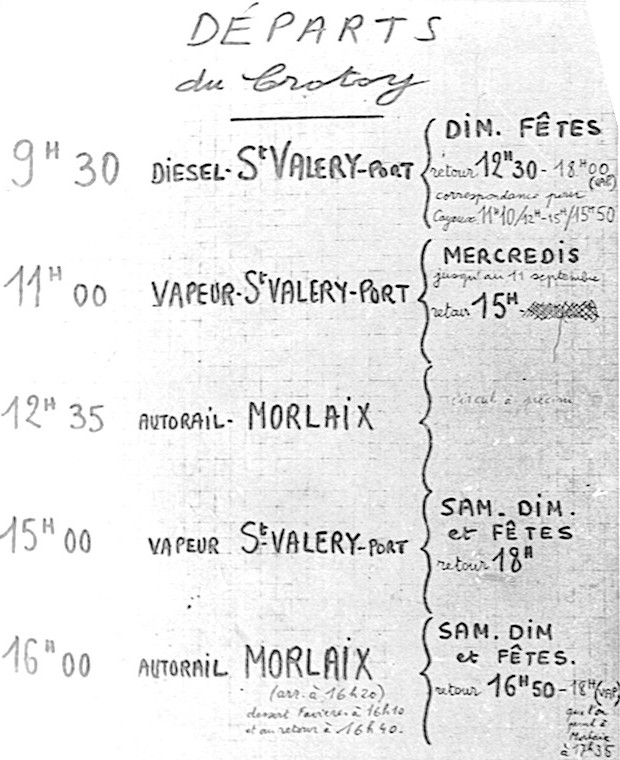 DÉPARTS
du Crotoy
9H 30 DIESEL-St VALERY-PORT
DIM. FÊTES
retour 12H30-18H00
(VAP)
correspondance pour
Cayeux 11H10/12H-15H/15H50
11H 00 VAPEUR-St VALERY-PORT
MERCREDIS
jusqu'au 11 septembre
retour 15H-
12H 35 AUTORAIL- MORLAIX
circul à préciser
15H 00 VAPEUR St VALERY-PORT
SAM. DIM.
et FÊTES
retour 18H
16H 00 AUTORAIL MORLAIX
(arr. à 16h20)
dessert Favières à 16h10
et au retour à 16h40.
SAM. DIM
et FÊTES.
retour 16H50-18H(VAP)
que l'on
prend à
Morlaix
à 17h35